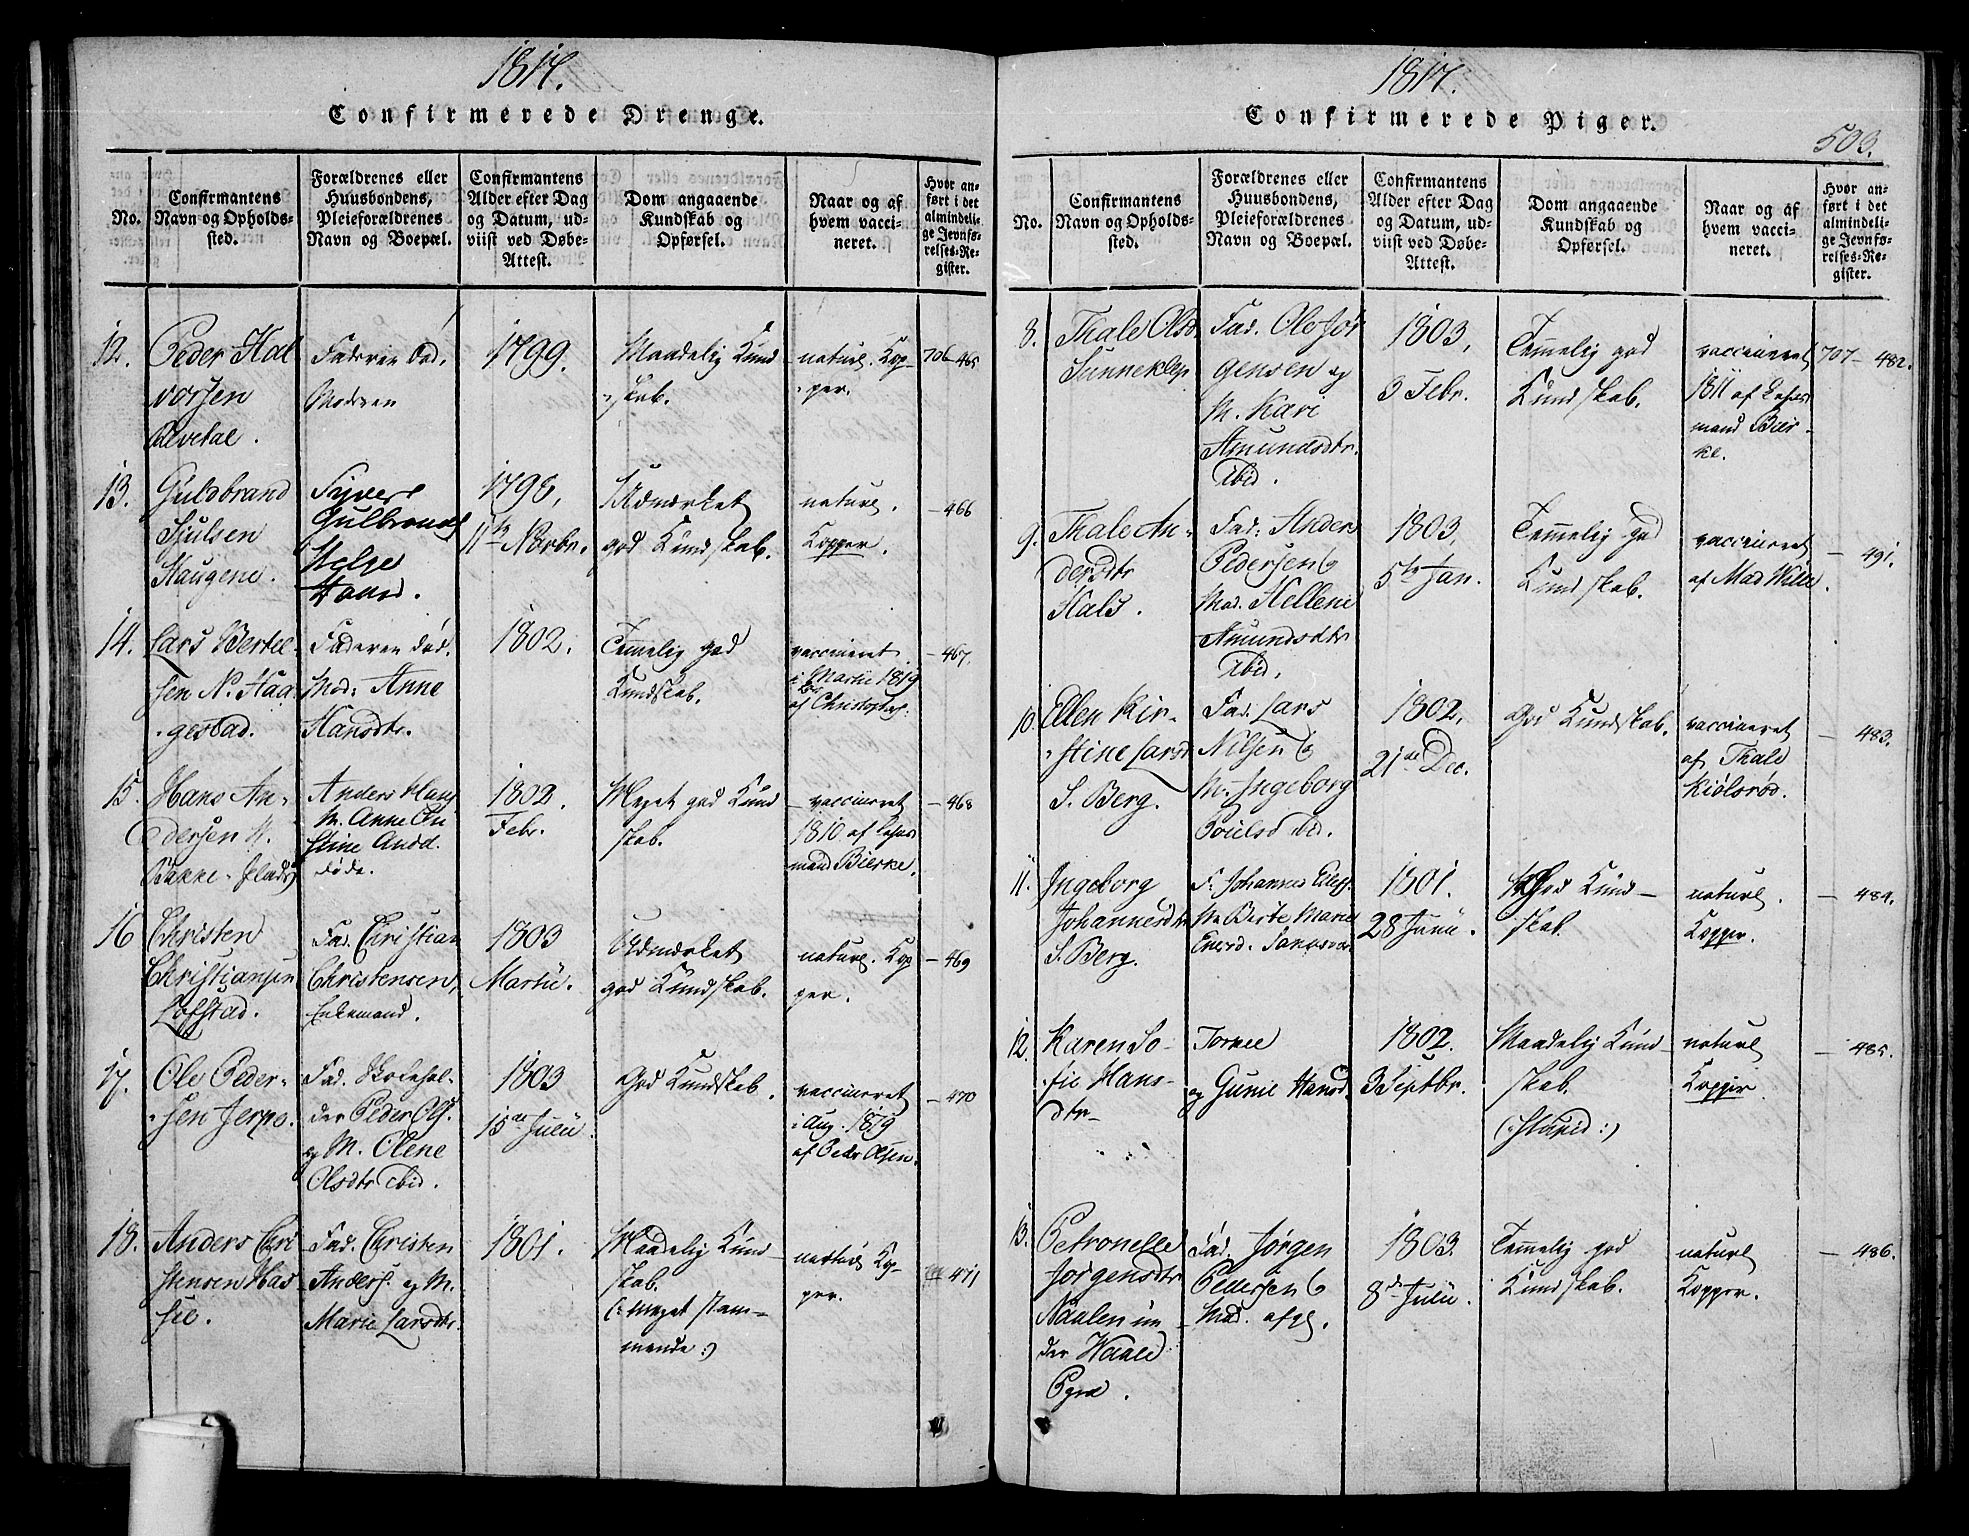 1817.
Confirmerede Drenge.
No.
Confirmantens
Navn og Opholds-
sted.
Forældrenes eller
Huusbondens,
Pleieforældrenes
Navn og Boepæl.
Confirmantens
Alder efter Dag
og Datum, ud-
viist ved Døbe-
Attest.
Dom angaaende
Kundskab og
Opførsel.
Naar og af
hvem vacci-
neret.
Hvor an-
ført i det
almindeli-
ge Jevnfø-
relses-Re-
gister.
12.
Peder Hal
vorsen
Faderen død,
Moderen
1799.
Maadelig Kund
skab.
naturl. Kop-
per.
706-465
13.
Guldbrand
Sjulsen
Haugene.
Syver
Gulbrands
Helge
11te Novbr.
Udmærket
god Kundskab.
naturl.
Kopper.
-466
14.
Lars Bertel
sen N. Haa
gestad.
Faderen død.
Mod: Anne
Hansdtr.
1802.
Temelig god
Kundskab.
vaccineret
i Martii 1819
af Christophers:
-467.
15.
Hans An-
dersen N.
Bakke-Plads
Anders Hans
M. Anne Chri
stine Andd.
døde.
1802.
Febr.
Meget god Kund
skab.
vaccineret
1810 af Lehns
mand Bierke.
-468
16
Christen
Christiansen
Lofstad.
Fad. Christian
Christensen,
Enkemand.
1803
Martii.
Udmærket
god Kundskab.
naturl. Kop
per.
-469
17.
Ole Peder-
sen Jerpe.
Fad. Skolehol-
der Peder Ols.
og M. Olene
Olsdtr ibid.
1803
15de Julii
God Kundskab.
vaccineret
i Aug. 1819
af Peder Olsen.
-470
18.
Anders Chri
stensen Has
sel.
Fad. Christen
Anders. og M.
Marie Larsdtr.
1801.
Maadelig Kund
skab.
(: meget stam-
mende :)
Kop-
per.
471
1817.
Confirmerede Piger.
503.
No.
Confirmantens
Navn og Opholds-
sted.
Forældrenes eller
Huusbondens,
Pleieforældrenes
Navn og Boepæl.
Confirmantens
Alder efter Dag
og Datum, ud-
viist ved Døbe-
Attest.
Dom angaaende
Kundskab og
Opførsel.
Naar og af
hvem vacci-
neret.
Hvor an-
ført i det
almindeli-
ge Jevnfø-
relses-Re-
gister.
8.
Thale Olsd.
Sunneklep.
Fad. Ole Jør
gensen og
M. Kari
Amundsdtr.
ibid.
1803,
3 Febr.
Temmelig god
Kundskab.
vaccineret
1811 af Lehns
mand Bier-
ke.
707-482.
9.
Thale An-
dersdtr
Hals.
Fad: Anders
Pedersen &
Mod. Hellene
Amundsdtr
ibid.
1803,
5te Jan.
Temelig god
Kundskab.
vaccineret
af Mad Wille.
- 491.
10.
Ellen Kir-
stine Larsd
S. Berg.
Fad. Lars
Nilsen &
M. Ingeborg
Poulsd ibid.
1802,
21de Dec.
God Kundskab.
vaccineret
af Thale
Kiølsrød.
- 483.
11.
Ingeborg
Johannesdtr
S. Berg.
F. Johannes Eilefs.
M. Birte Marie
1801.
28 Junii.
God Kund-
skab.
naturl.
Kopper.
- 484.
12.
Karen So-
fie Hans-
dtr-
og Gunil Hansd.
1802.
3 Septbr.
Maadelig Kund-
skab.
(: stupid :)
naturl
Kopper.
- 485.
13.
Petronelle
Jørgensdtr
Naalen un
der
Fad. Jørgen
Pedersen &
Mod. afg.
1803.
8de Julii.
Temelig god
Kundskab.
naturl
Kopper.
- 486.